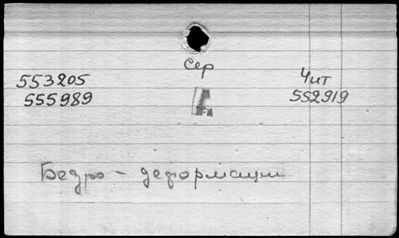 Сер
Чит
553205
552919
555989
Бедро - деформации